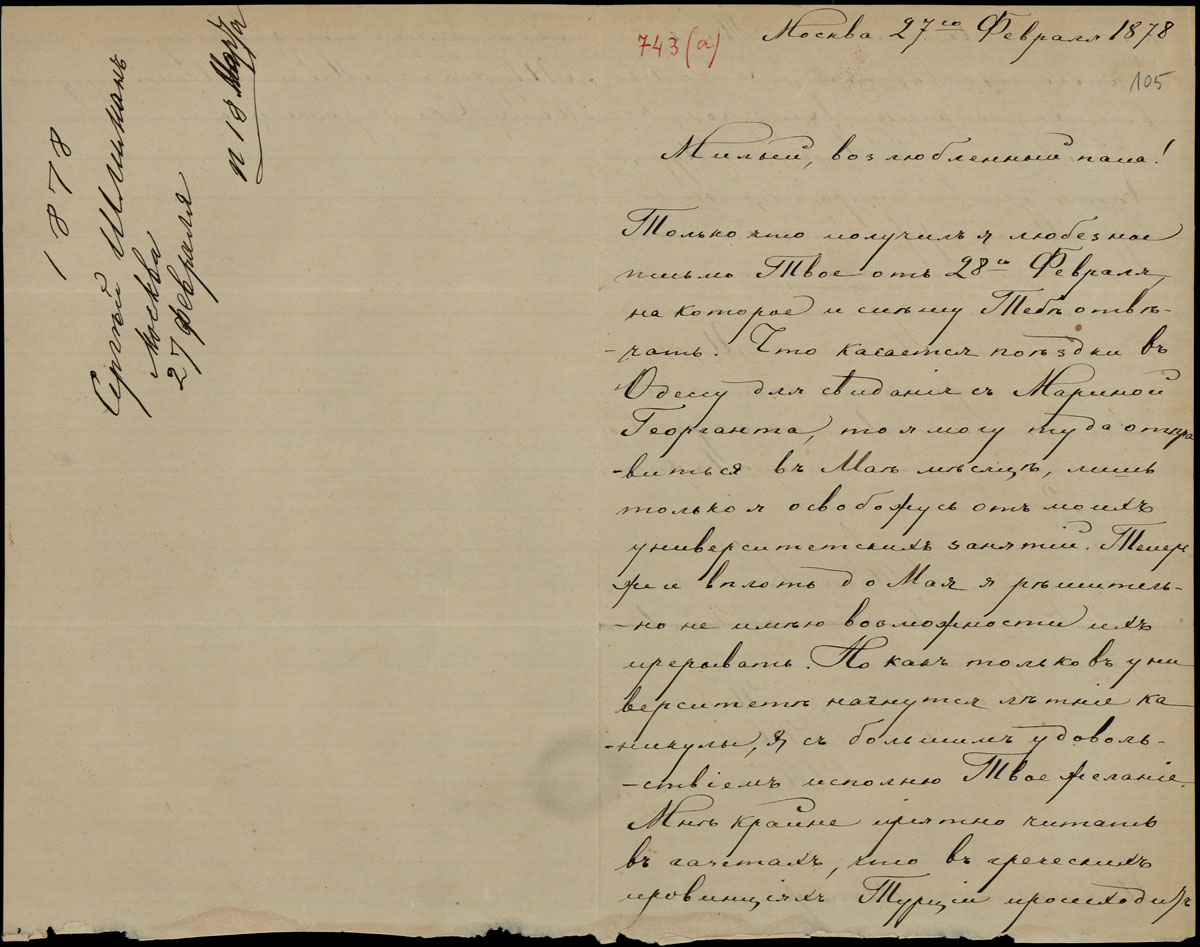 1878
Сергѣй Шиманъ
Москва
27 февраля
п 18 Марта
743 (а)
Москва 27го Февраля 1878
105
Милый, возлюбленный папа!
Только что получилъ я любезное
письмо Твое отъ 28го Февраля,
на которое и спѣшу Тебѣ отвѣ-
-чать. Что касается поѣздки въ
Одессу для свиданія съ Мариной
Георганта, то я могу туда отпра
-виться въ Маѣ мѣсяцѣ, лишь
только я освобожусь отъ моихъ
университетскихъ занятій. Теперь
же и вплоть до Мая я рѣшитель-
-но не имѣю возможности ихъ
прерывать. Но какъ только въ уни
верситетѣ начнутся лѣтніе ка-
-никулы, я съ большимъ удоволь-
-ствіемъ исполню Твое желаніе.
Мнѣ крайне пріятно читать
въ газетахъ, что въ греческихъ
провинціяхъ Турціи происходитъ